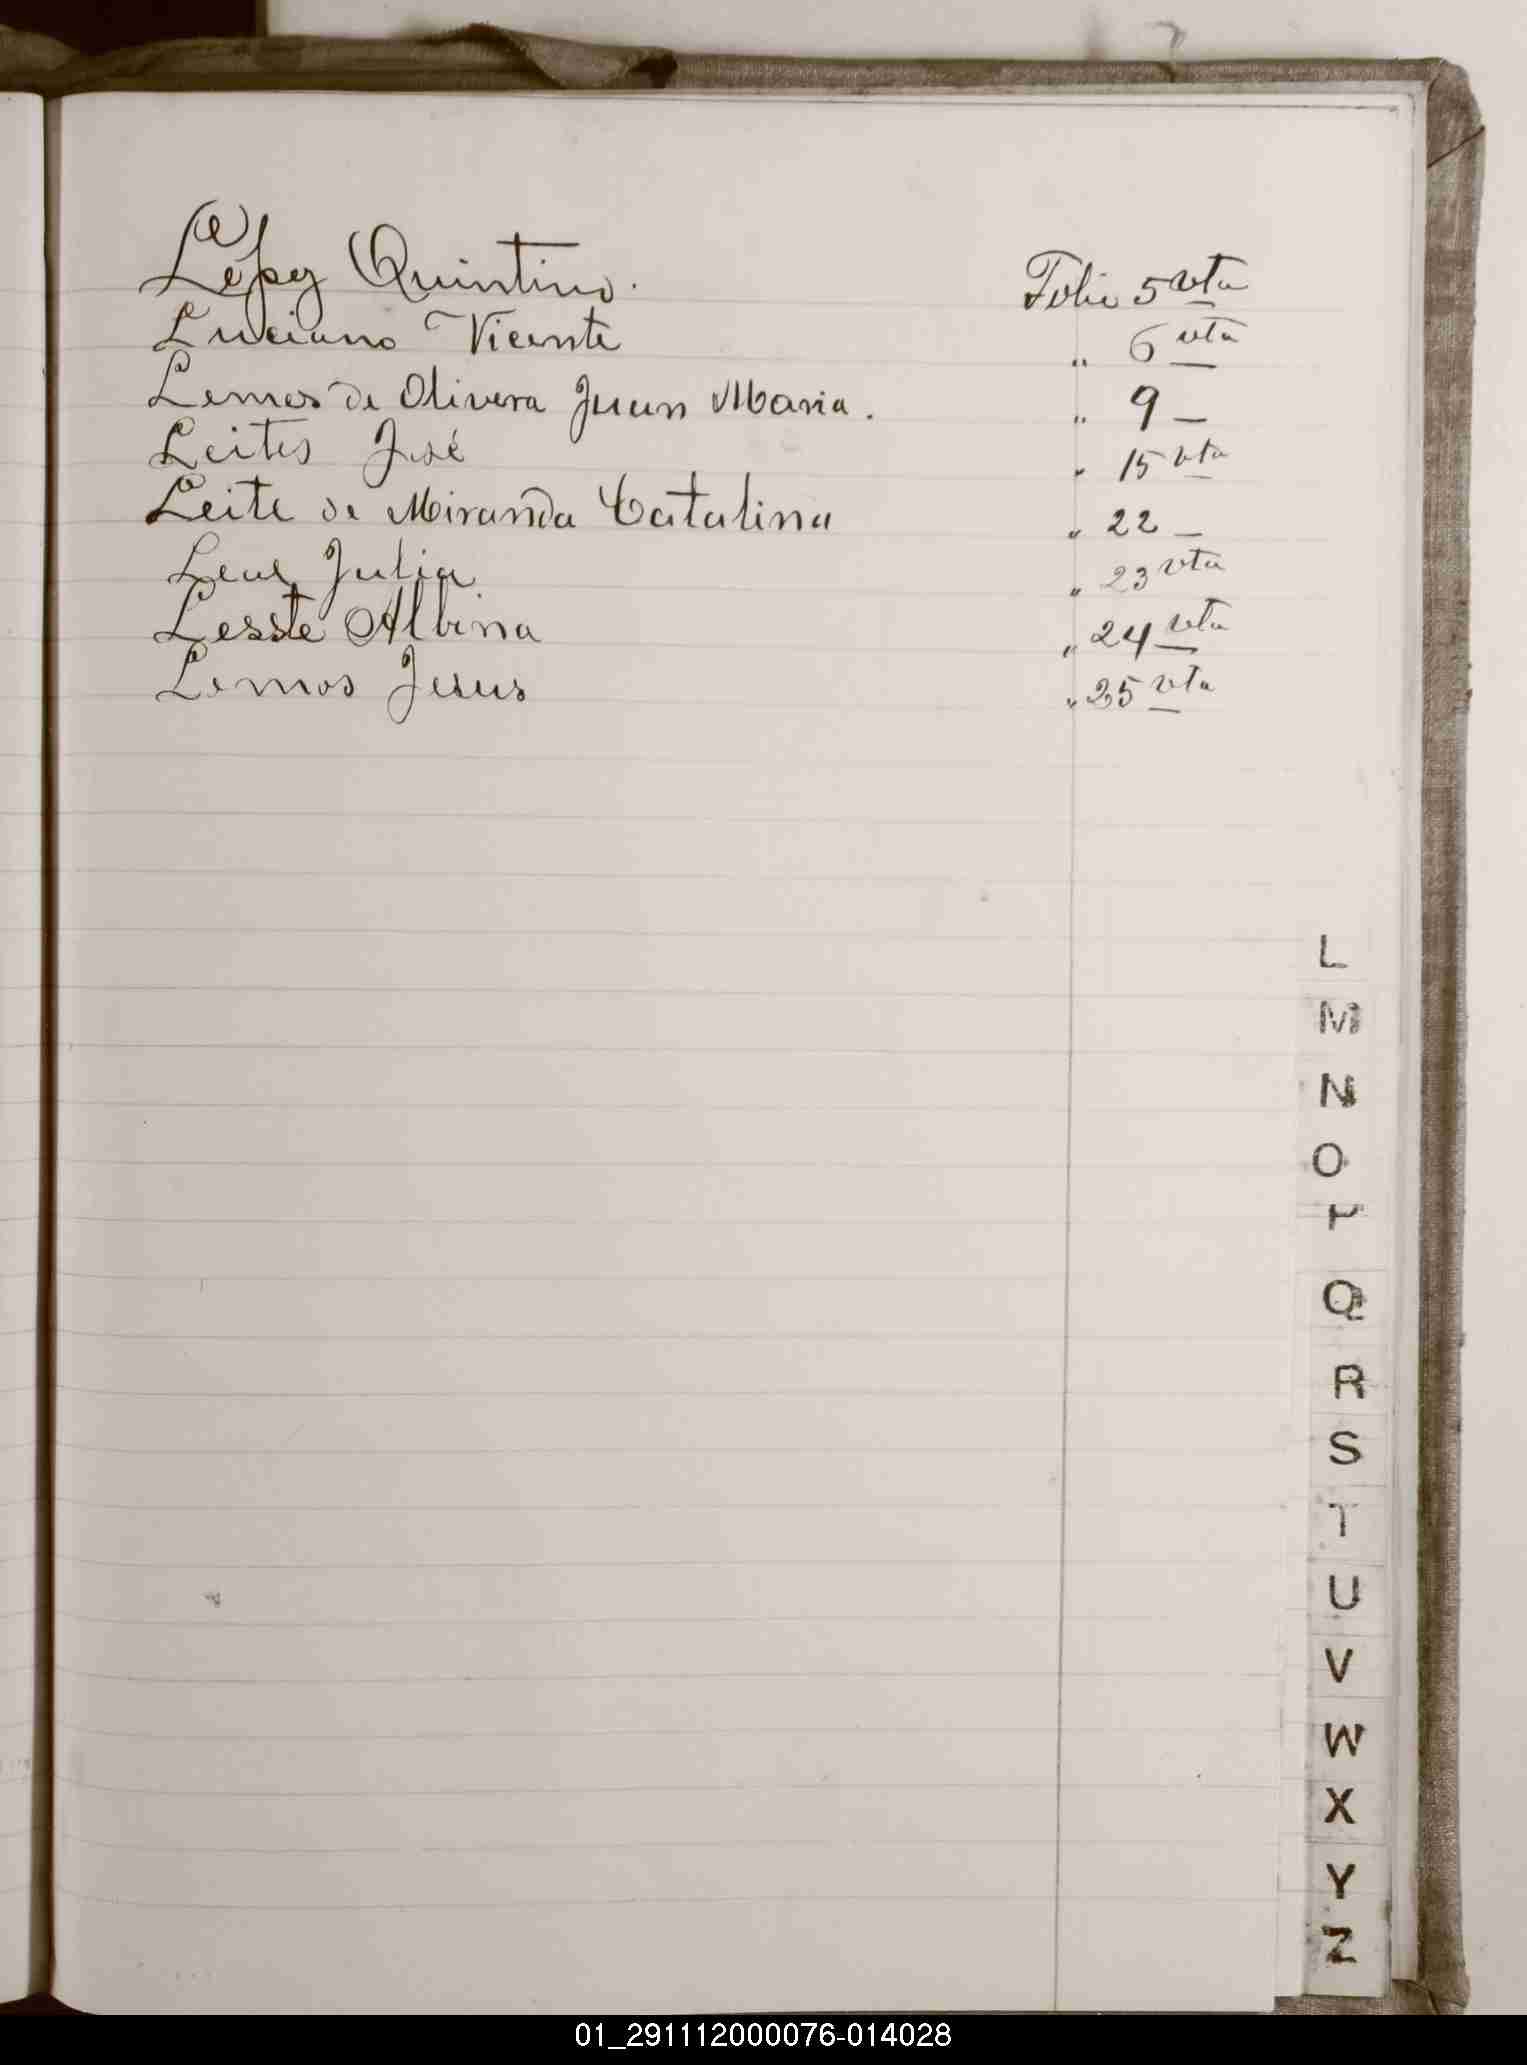 Lopez Quintino. Folio 5 vta
Luciano Vicente " 6 vta
Lemos de Olivera Juan Maria. " 9 —
Leites José " 15 vta
Leite de Miranda Catalina " 22 —
Leal Julia " 23 vta
Lesste Albina " 24 vta
Lemos Jesus " 25 vta
L
M
N
O
P
Q
R
S
T
U
V
W
X
Y
Z
01_291112000076-014028